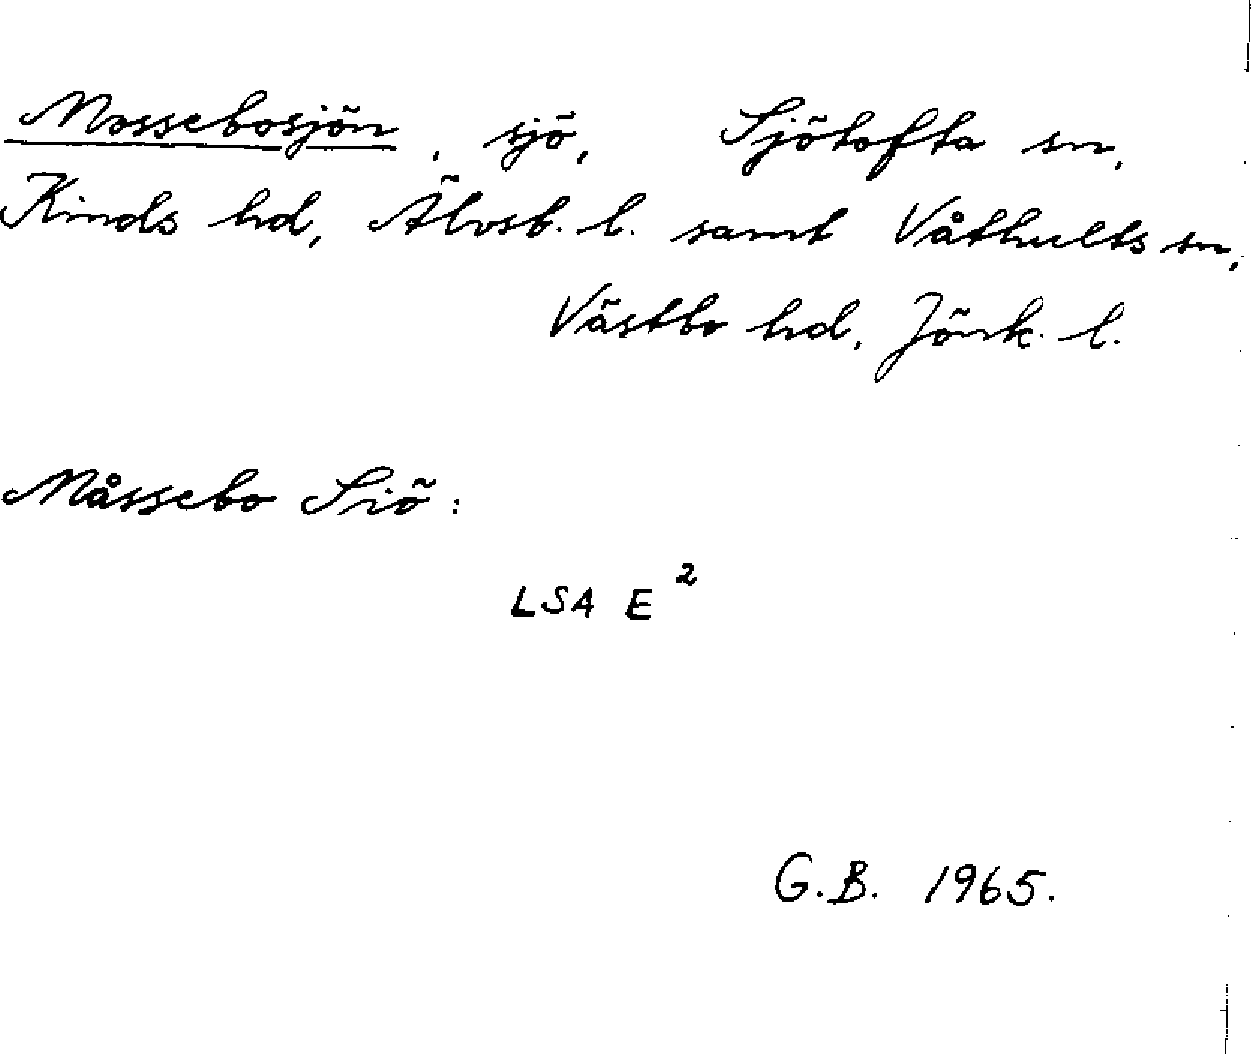 Mossebosjön, sjö, Sjötofta sn,
Kinds hd, Älvsb. l. samt Våthults sn,
Västbo hd, Jönk. l.
Måssebo Siö:
LSA E²
G.B. 1965.